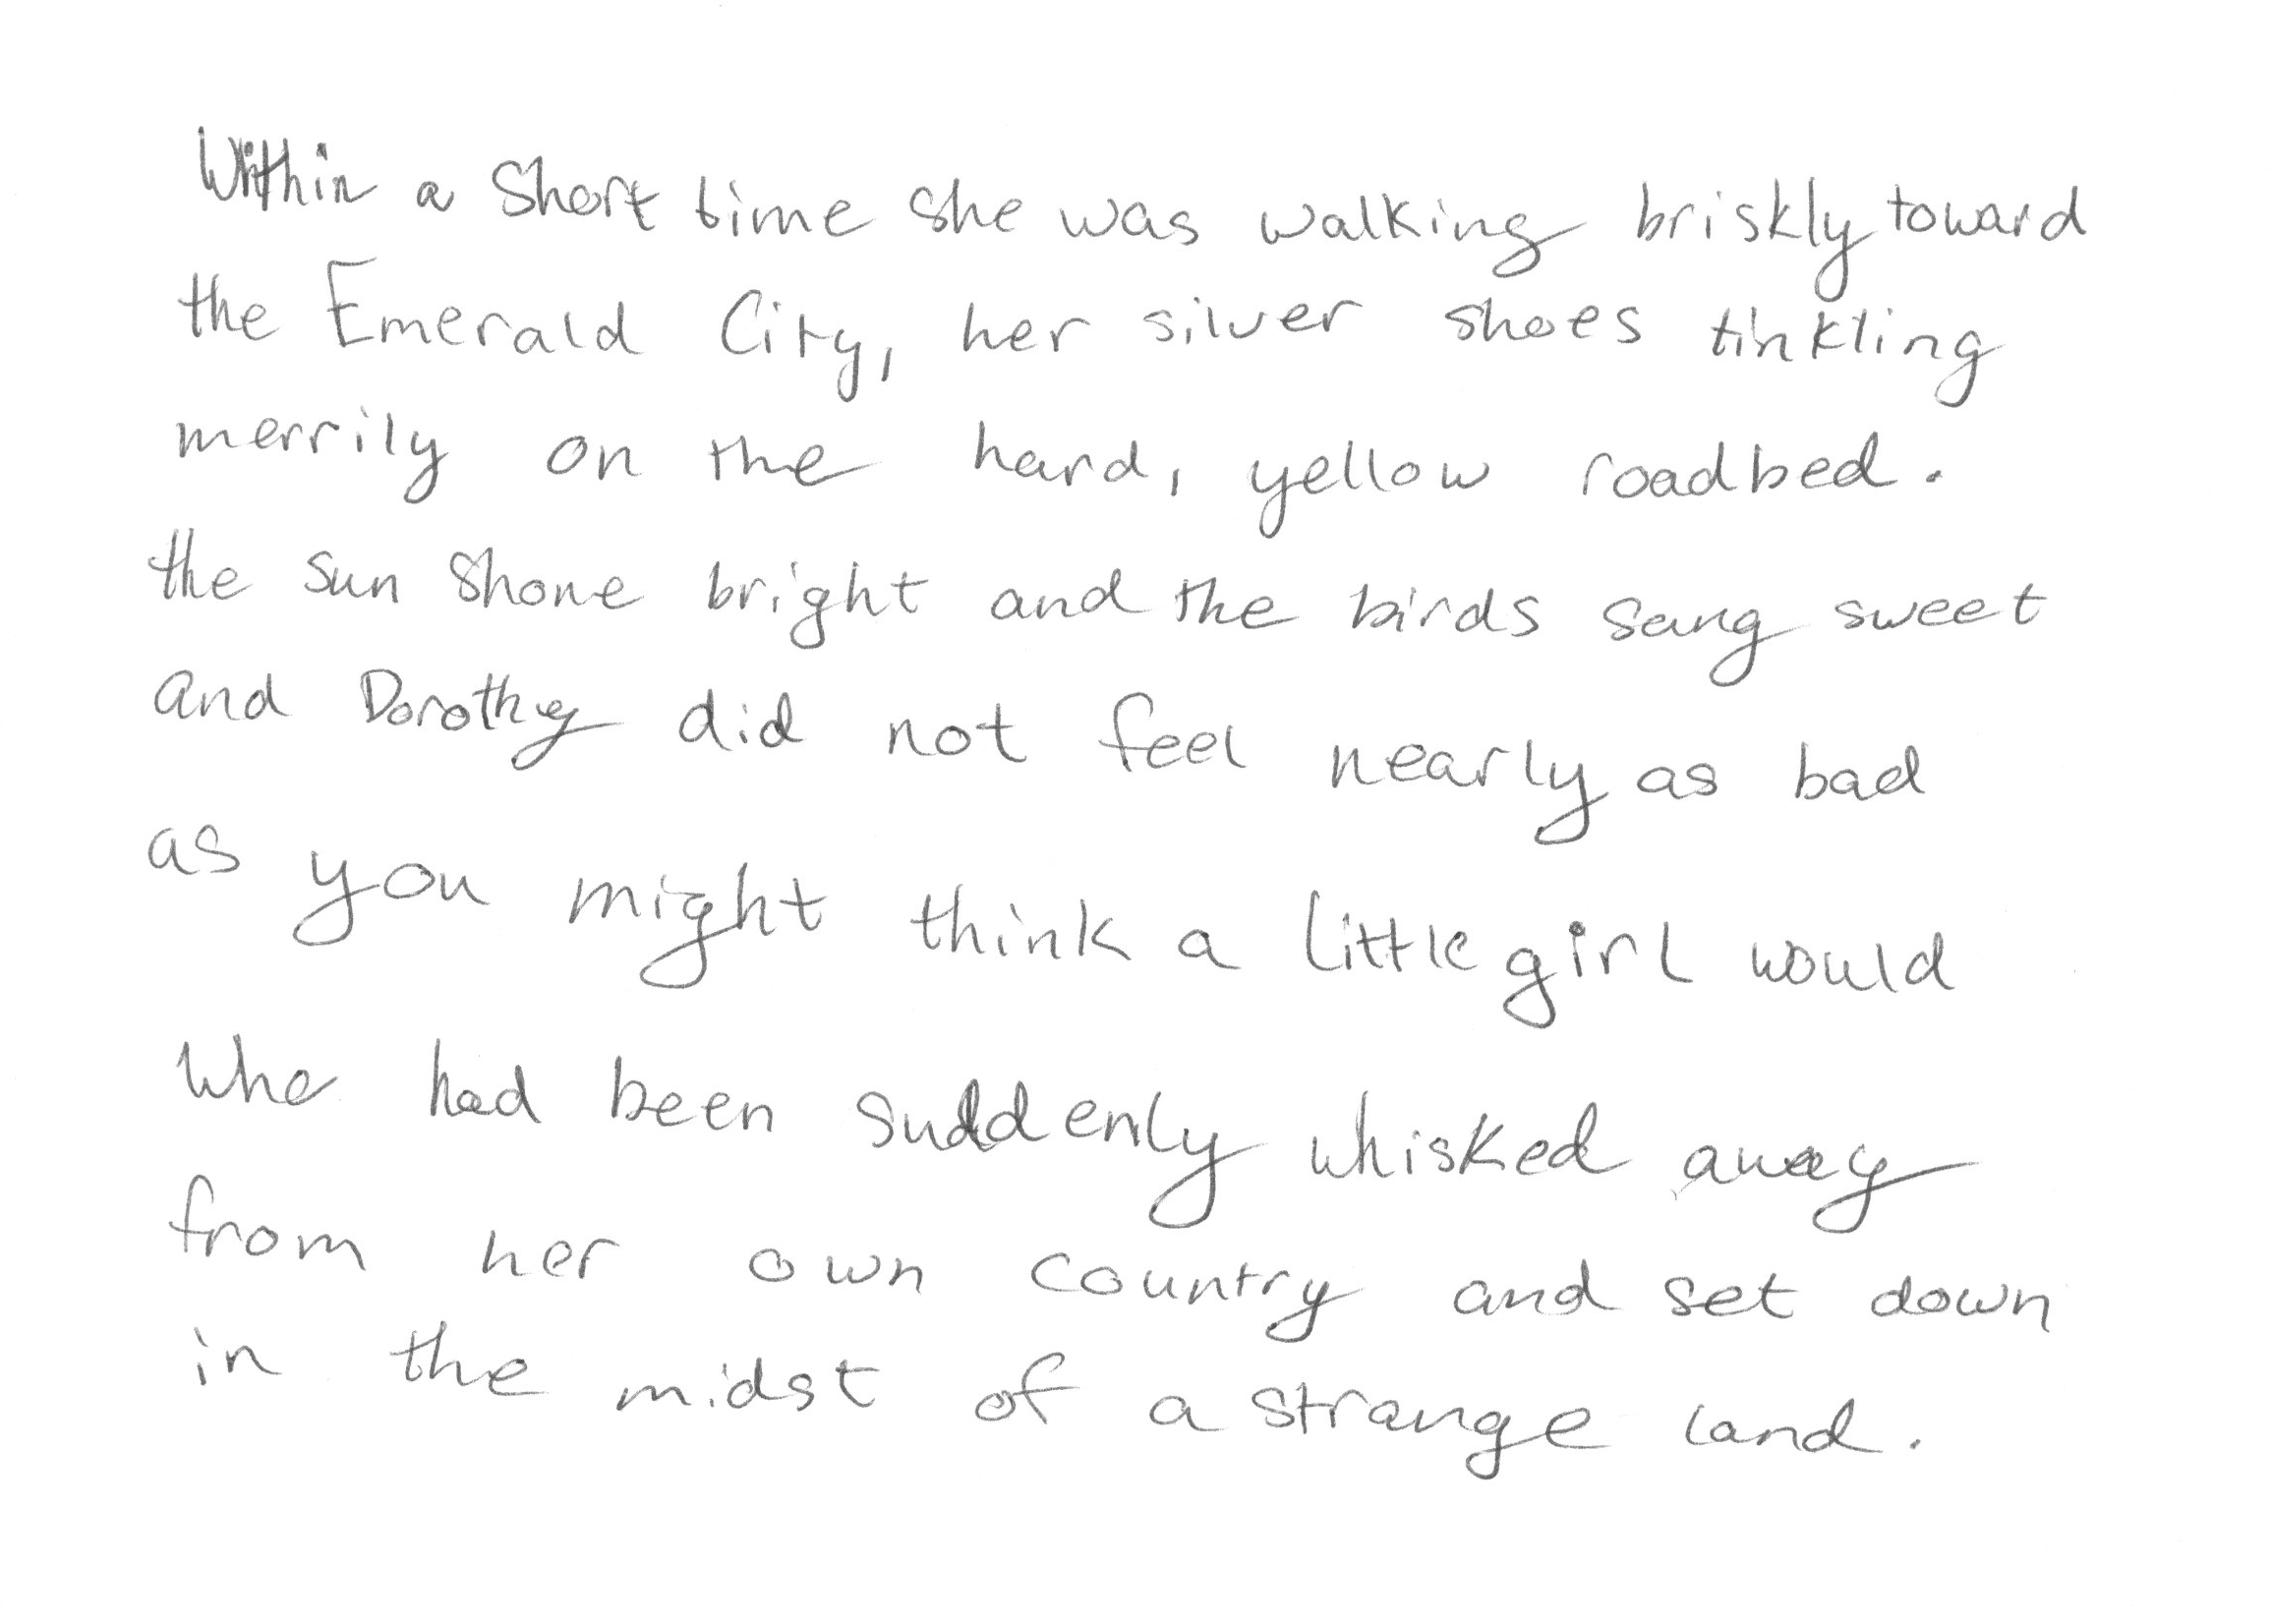 Within a short time she was walking briskly toward
the Emerald City, her silver shoes tinkling
merrily on the hard, yellow roadbed.
the sun shone bright and the birds sang sweet
and Dorothy did not feel nearly as bad
as you might think a little girl would
who had been suddenly whisked away
from her own country and set down
in the midst of a strange land.